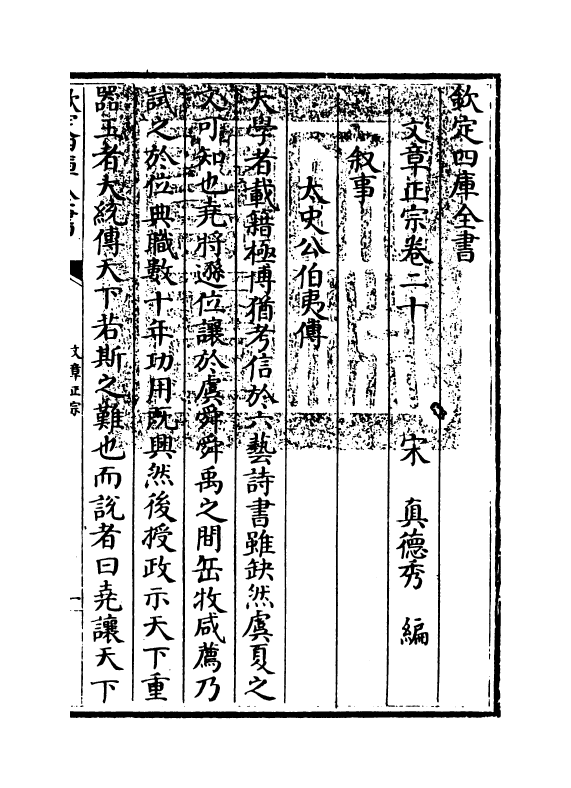 欽定四庫全書
文章正宗卷二十　宋　真德秀　編
叙事
太史公伯夷傳
夫學者載籍極博猶考信於六藝詩書雖缺然虞夏之
文可知也堯將遜位讓於虞舜舜禹之間岳牧咸薦乃
試之於位典職數十年功用既興然後授政示天下重
器王者大統傳天下若斯之難也而說者曰堯讓天下
文章正宗